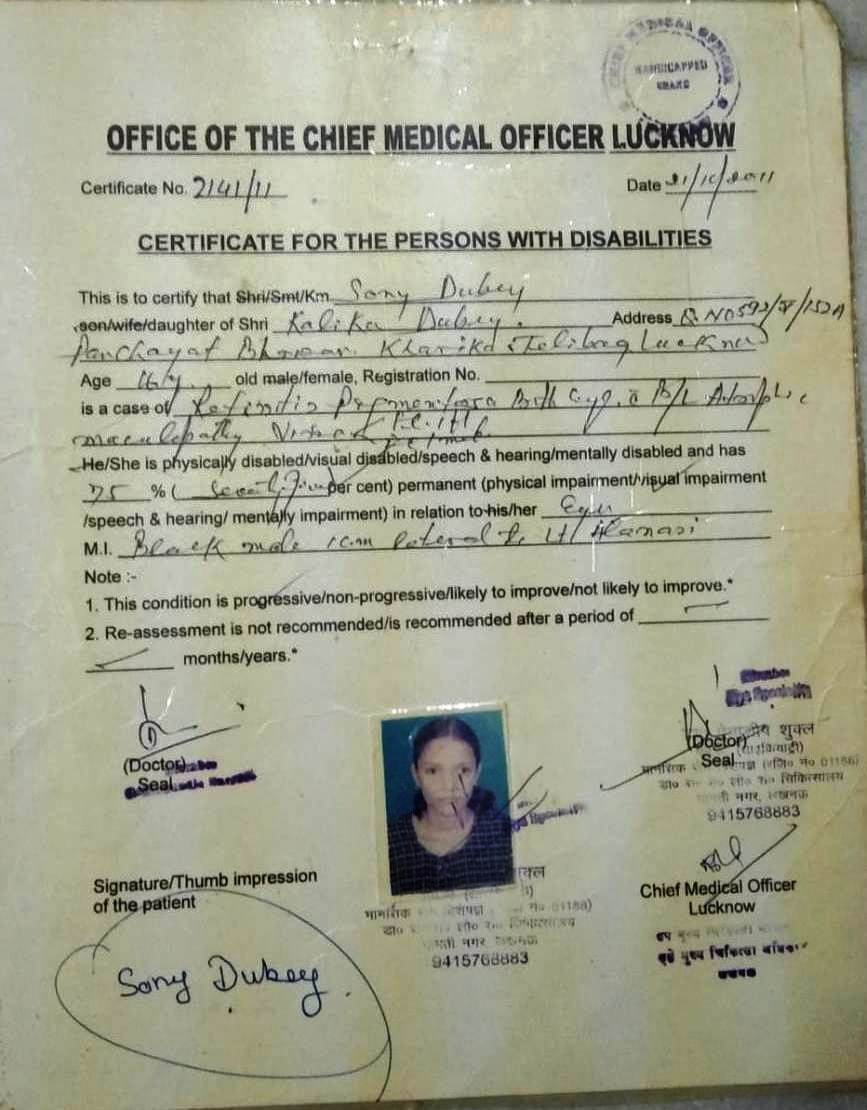 CHIEF MEDICAL OFFICER
HANDICAPPED
BOARD
OFFICE OF THE CHIEF MEDICAL OFFICER LUCKNOW
Certificate No. 2141/11
Date /2011
CERTIFICATE FOR THE PERSONS WITH DISABILITIES
This is to certify that Shri/Smt/Km Sony Dubey
son/wife/daughter of Shri Kalika Dubey. Address
Panchayat Bhawan Kharika Telibag Lucknow
Age 16 y. old male/female, Registration No.
is a case of Both Eye B/L
maculopathy
He/She is physically disabled/visual disabled/speech & hearing/mentally disabled and has
75 % ( Seventy Five per cent) permanent (physical impairment/visual impairment
/speech & hearing/ mentally impairment) in relation to his/her Eye
M.I. Black mole 1cm lateral to Lt
Note :-
1. This condition is progressive/non-progressive/likely to improve/not likely to improve.*
2. Re-assessment is not recommended/is recommended after a period of
months/years.*
(Doctor)
Seal
Eye Specialist
(Doctor)
Seal
शुक्ल
मानसिक
चिकित्सालय
नगर, लखनऊ
9415768883
Signature/Thumb impression
of the patient
Sony Dubey
शुक्ल
मानसिक
नगर लखनऊ
9415768883
Chief Medical Officer
Lucknow
मुख्य चिकित्सा
लखनऊ